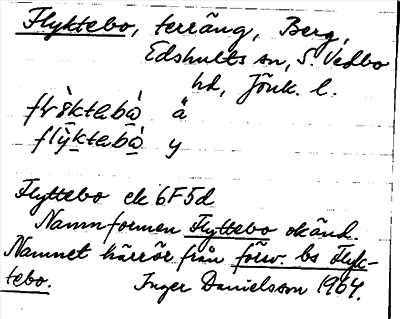 Flyktebo, terräng, Berg,
Edshults sn, S. Vedbo
hd, Jönk. l.
flỳktabà ä
flỳktabà y
Flyttebo ek 6F5d
Namnformen Flyttebo okänd.
Namnet härrör från förv. bs Flyk-
tebo. Inger Danielsson 1964.